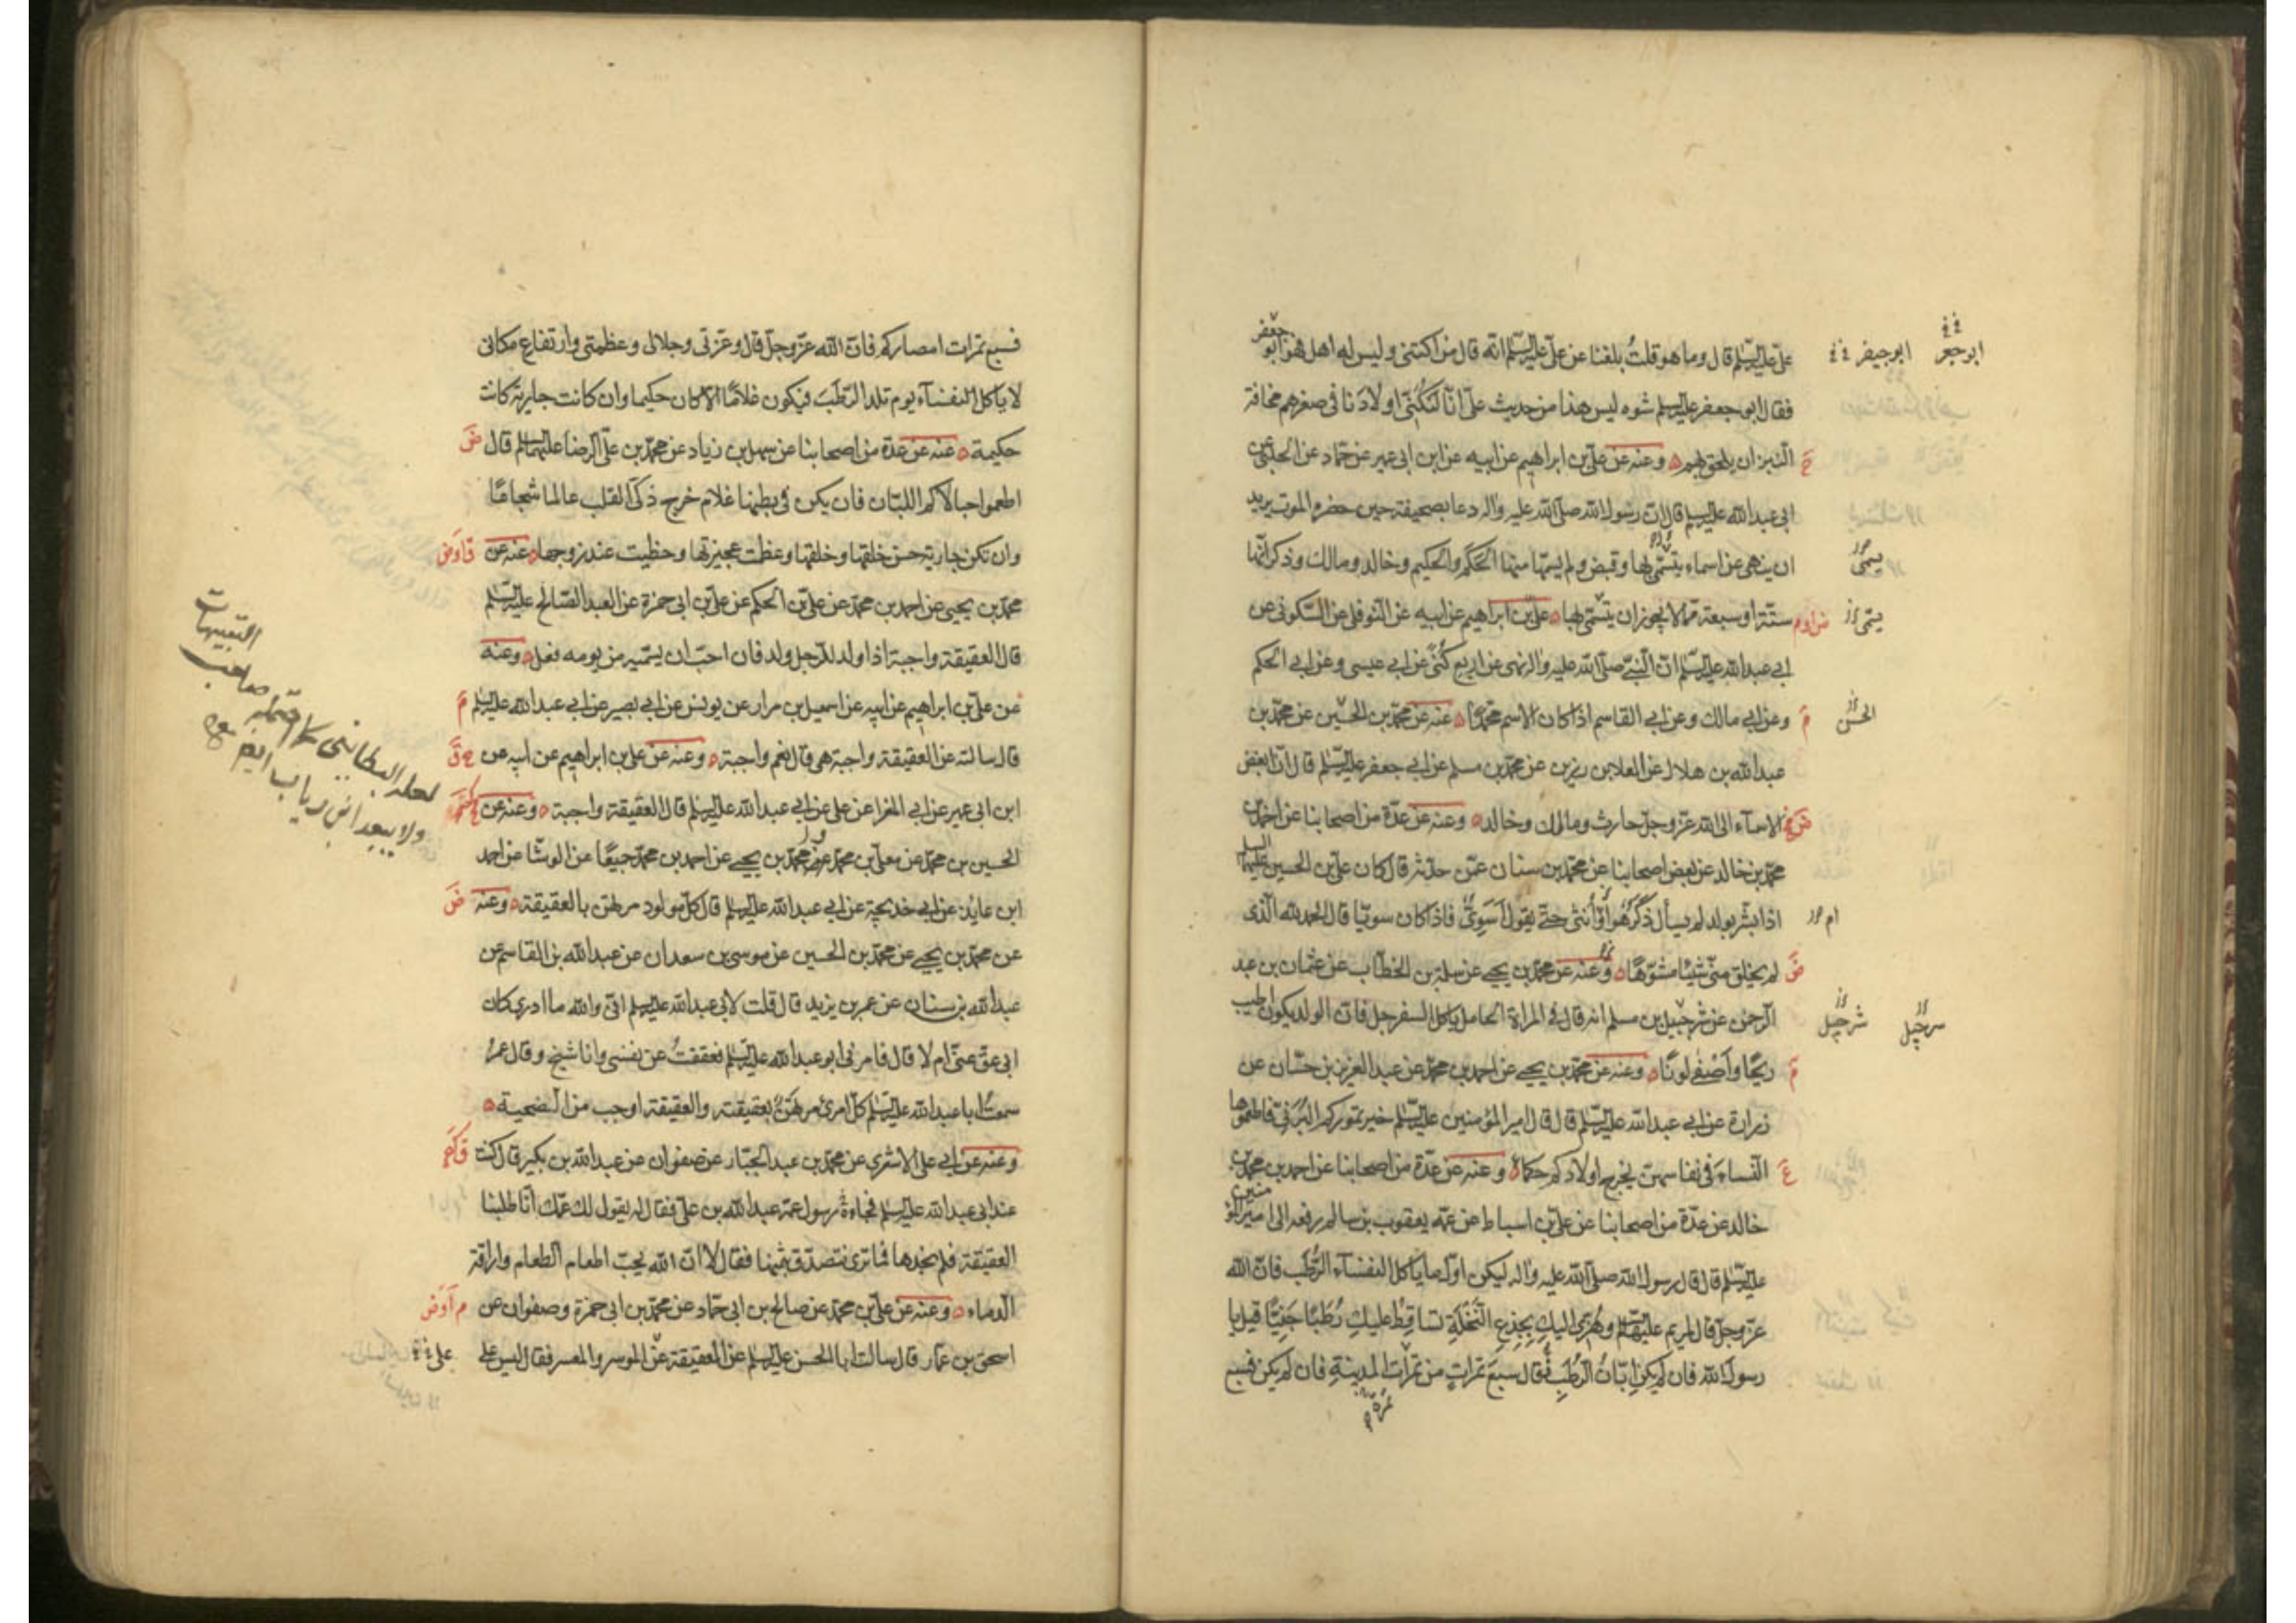 على عليه السلم قال وما هو قلت بلغنا عن على عليه السلم انه قال من اكتنى وليس له اهل فهو ابو جعفر
ابوجيفر
ابوجعر
فقال ابو جعفر عليه السلم شوه ليس هذا من حديث على انا لنكنى اولادنا فى صغرهم مخافة
النبز ان يلحق بهم وعنه عن على بن ابراهيم عن ابيه عن ابن ابى عمير عن حماد عن الحلبى عن
ابى عبد الله عليه السلم قال ان رسول الله صلى الله عليه واله دعا بصحيفة حين حضره الموت يريد
ان ينهى عن اسماء يتسمى بها وقبض ولم يسمها منها الحكم والحكيم وخالد ومالك وذكر انها
يسمى
ستة او سبعة مما لا يجوز ان يتسمى بها على بن ابراهيم عن ابيه عن النوفلى عن السكونى عن
يتمى
ابى عبد الله عليه السلم ان النبى صلى الله عليه واله نهى عن اربع كنى عن ابى عيسى وعن ابى الحكم
وعن ابى مالك وعن ابى القاسم اذا كان الاسم محمدا عنه عن محمد بن الحسين عن محمد بن
م
الحسن
عبد الله بن هلال عن العلا بن رزين عن محمد بن مسلم عن ابى جعفر عليه السلم قال ان ابغض
الاسماء الى الله عز وجل حارث ومالك وخالد وعنه عن عدة من اصحابنا عن احمد بن
محمد بن خالد عن بعض اصحابنا عن محمد بن سنان عمن حدثه قال كان على بن الحسين عليهما السلم
اذا بشر بولد لم يسأل ذكر هو او انثى حتى يقول اسوى فاذا كان سويا قال الحمد لله الذى
ام
لم يخلق منى شيئا مشوها وعنه عن محمد بن يحيى عن سلمة بن الخطاب عن عثمان بن عبد
ض
الرحمن عن شرحبيل بن مسلم انه قال فى المراة الحامل ياكل السفرجل فان الولد يكون اطيب
شرحبيل
ريحا واصفى لونا وعنه عن محمد بن يحيى عن احمد بن محمد عن عبد العزيز بن حسان عن
م
زرارة عن ابى عبد الله عليه السلم قال قال امير المؤمنين عليه السلم خير تموركم البرنى فاطعموها
النساء فى نفاسهن يخرج اولادكم حكماء وعنه عن عدة من اصحابنا عن احمد بن محمد بن
خالد عن عدة من اصحابنا عن على بن اسباط عن عمه يعقوب بن سالم رفعه الى امير المؤمنين
عليه السلم قال قال رسول الله صلى الله عليه واله ليكن اول ما ياكل النفساء الرطب فان الله
عز وجل قال لمريم عليها السلم وهزى اليك بجذع النخلة تساقط عليك رطبا جنيا قيل يا
رسول الله فان لم يكن ابان الرطب قال سبع تمرات من تمرات المدينة فان لم يكن فسبع
فسبع تمرات امصاركم فان الله عز وجل قال وعزتى وجلالى وعظمتى وارتفاع مكانى
لا ياكل النفساء يوم تلد الرطب فيكون غلاما الا كان حكيما وان كانت جارية كانت
حكيمة عنه عن عدة من اصحابنا عن سهل بن زياد عن محمد بن على الرضا عليهما السلم قال
ض
اطعموا حبالاكم اللبان فان يكن فى بطنها غلام خرج ذكى القلب عالما شجاعا
وان تكن جارية حسن خلقها وخلقها وعظمت عجيزتها وحظيت عند زوجها عنه عن
محمد بن يحيى عن احمد بن محمد عن على بن الحكم عن على بن ابى حمزة عن العبد الصالح عليه السلم
قال العقيقة واجبة اذا ولد للرجل ولد فان احب ان يسميه من يومه فعل وعنه
عن على بن ابراهيم عن ابيه عن اسمعيل بن مرار عن يونس عن ابى بصير عن ابى عبد الله عليه السلم
م
قال سالته عن العقيقة واجبة هى قال نعم واجبة وعنه عن على بن ابراهيم عن ابيه عن
ابن ابى عمير عن ابى المغرا عن على عن ابى عبد الله عليه السلم قال العقيقة واجبة وعنه عن
لعله البطاينى
ولا يبعد ابن رياب ايضا
الحسين بن محمد عن معلى بن محمد وعن محمد بن يحيى عن احمد بن محمد جميعا عن الوشا عن احمد
ابن عايذ عن ابى خديجة عن ابى عبد الله عليه السلم قال كل مولود مرتهن بالعقيقة وعنه
ض
عن محمد بن يحيى عن محمد بن الحسين عن موسى بن سعدان عن عبد الله بن القاسم عن
عبد الله بن سنان عن عمر بن يزيد قال قلت لابى عبد الله عليه السلم انى والله ما ادرى كان
ابى عق عنى ام لا قال فامرنى ابو عبد الله عليه السلم فعققت عن نفسى وانا شيخ وقال عمر
سمعت ابا عبد الله عليه السلم كل امرئ مرتهن بعقيقته والعقيقة اوجب من الضحية
وعنه عن ابى على الاشعرى عن محمد بن عبد الجبار عن صفوان عن عبد الله بن بكير قال كنت
عند ابى عبد الله عليه السلم فجاءه رسول عمه عبد الله بن على فقال له يقول لك عمك انا طلبنا
العقيقة فلم نجدها فما ترى نتصدق بثمنها فقال لا ان الله يحب اطعام الطعام واراقة
الدماء وعنه عن على بن محمد عن صالح بن ابى حماد عن محمد بن ابى حمزة وصفوان عن
اسحق بن عمار قال سالت ابا الحسن عليه السلم عن العقيقة عن الموسر والمعسر فقال ليس على
على